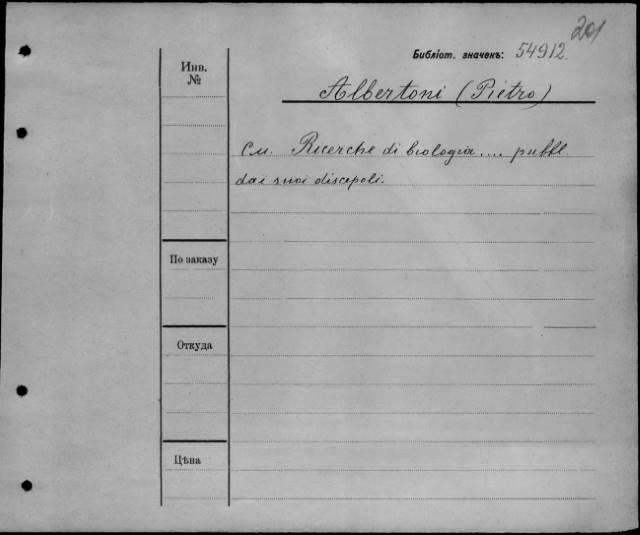 201
Библіот. значекъ: 54912.
Инв.
№
Albertoni (Pietro)
См. Ricerche di biologia.... pubbl.
dai suoi discepoli.
По заказу
Откуда
Цѣна